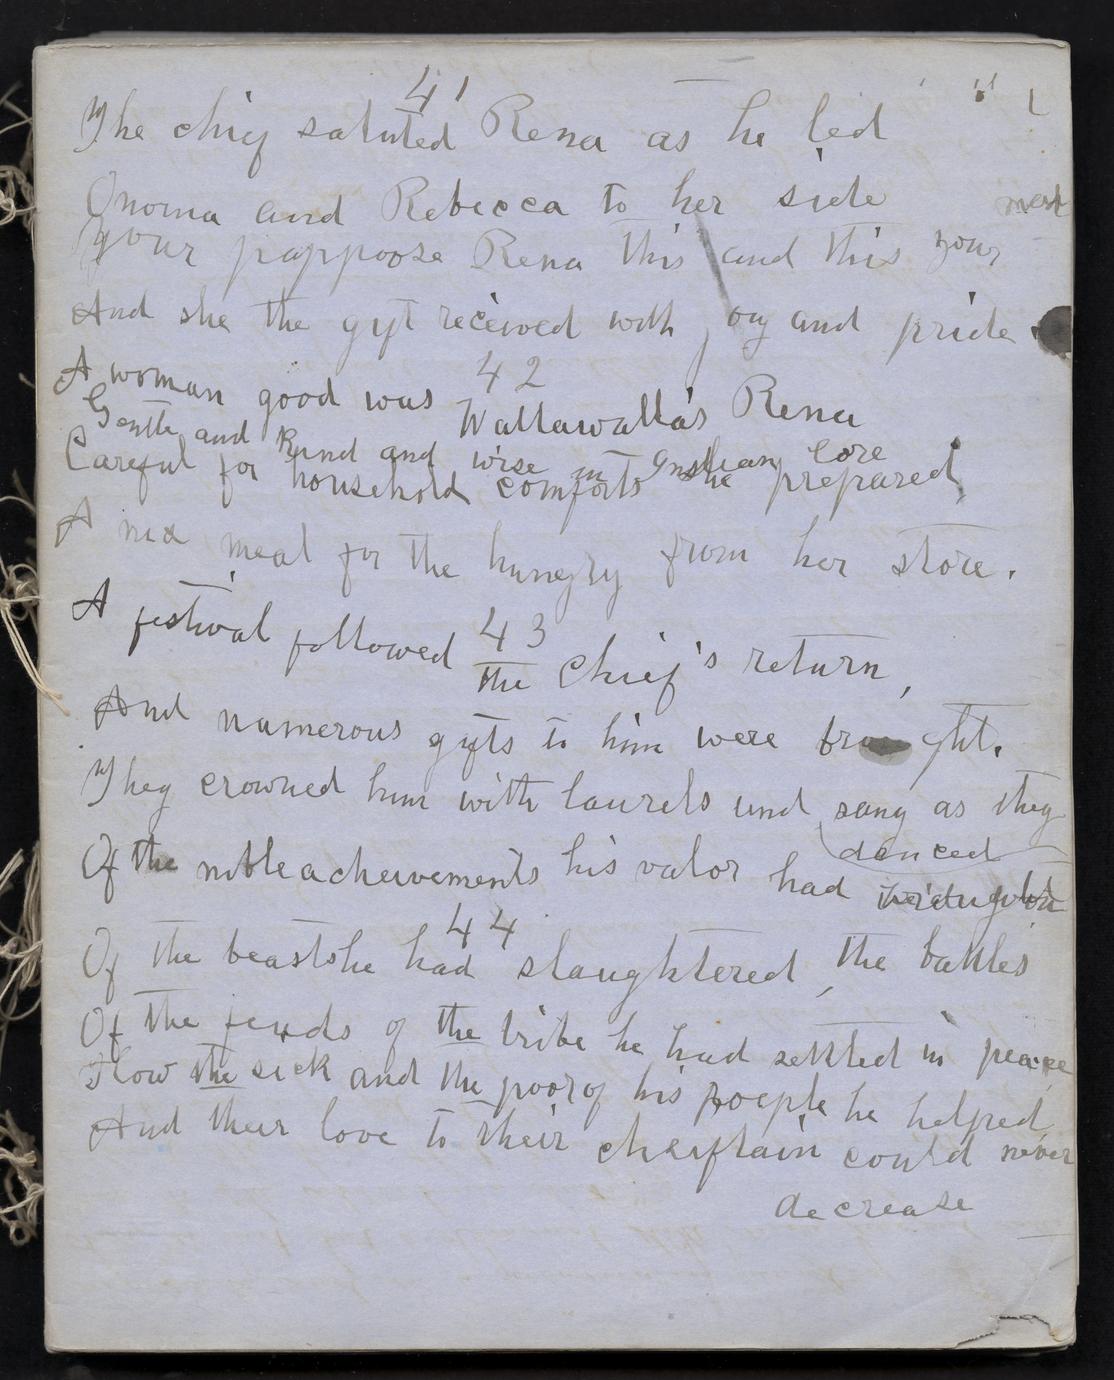 41
The chief saluted Rena as he led
Onoma and Rebecca to her side
your pappoose Rena this and this your
next
And she the gift received with joy and pride
42
A woman good was Wallawalla's Rena
Gentle and kind and wise in Indian lore
Careful for household comforts she prepared,
A nice meal for the hungry from her store.
43
A festival followed the Chief's return,
And numerous gifts to him were brought.
They crowned him with laurels and sang as they
danced
Of the noble acheivements his valor had
44
Of the beasts he had slaughtered, the battles
Of the feuds of the tribe he had settled in peace
How the sick and the poor of his poeple he helped,
And their love to their cheiftain could never
decrease